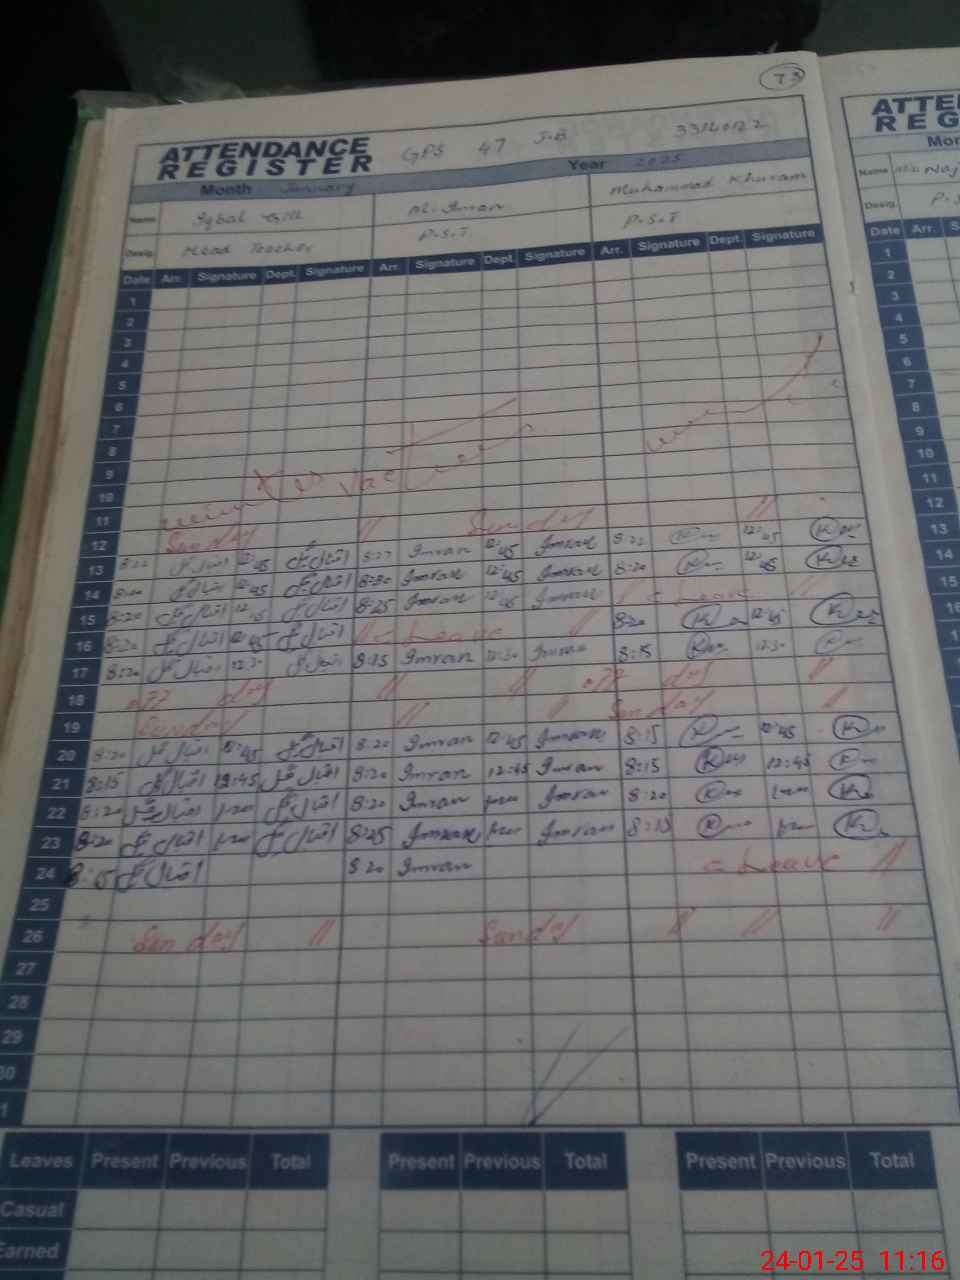 73
ATTENDANCE REGISTER GPS 47 J.B 33140122
Month January Year 2025
Name Iqbal Gill M. Imran Muhammad Khuram
Desig. Head Teacher P.S.T P.S.T
Date Arr. Signature Dept. Signature Arr. Signature Dept. Signature Arr. Signature Dept. Signature
1
2
3
4
5
6
7
8
9
10
11
12 Sunday // Sunday //
13 اقبال گل 12:45 اقبال گل 8:27 Imran 12:45 Imran 12:45
14 اقبال گل 12:45 اقبال گل 8:30 Imran 12:45 Imran 8:20 12:45
15 8:20 اقبال گل اقبال گل 8:25 Imran 12:45 Imran = Leave //
16 8:20 اقبال گل 12:45 اقبال گل = Leave // 8:20 12:45
17 8:20 اقبال گل 12:30 اقبال گل 8:15 Imran 12:30 Imran 8:15 12:30
18 off day // // off day //
19 Sunday // // Sunday //
20 8:20 اقبال گل 12:45 اقبال گل 8:20 Imran 12:45 Imran 8:15 12:45
21 8:15 اقبال گل 12:45 اقبال گل 8:20 Imran 12:45 Imran 8:15 12:45
22 8:20 اقبال گل اقبال گل 8:20 Imran Imran 8:20
23 8:20 اقبال گل اقبال گل 8:25 Imran Imran 8:15
24 8:15 اقبال گل 8:20 Imran = Leave //
25
26 Sunday // Sunday // // //
27
28
29
30
31
Leaves Present Previous Total Present Previous Total Present Previous Total
Casual
Earned
ATTEN
REG
Mon
Name
Desig. P.S
Date Arr. S
1
2
3
4
5
6
7
8
9
10
11
12
13
14
15
16
24-01-25 11:16